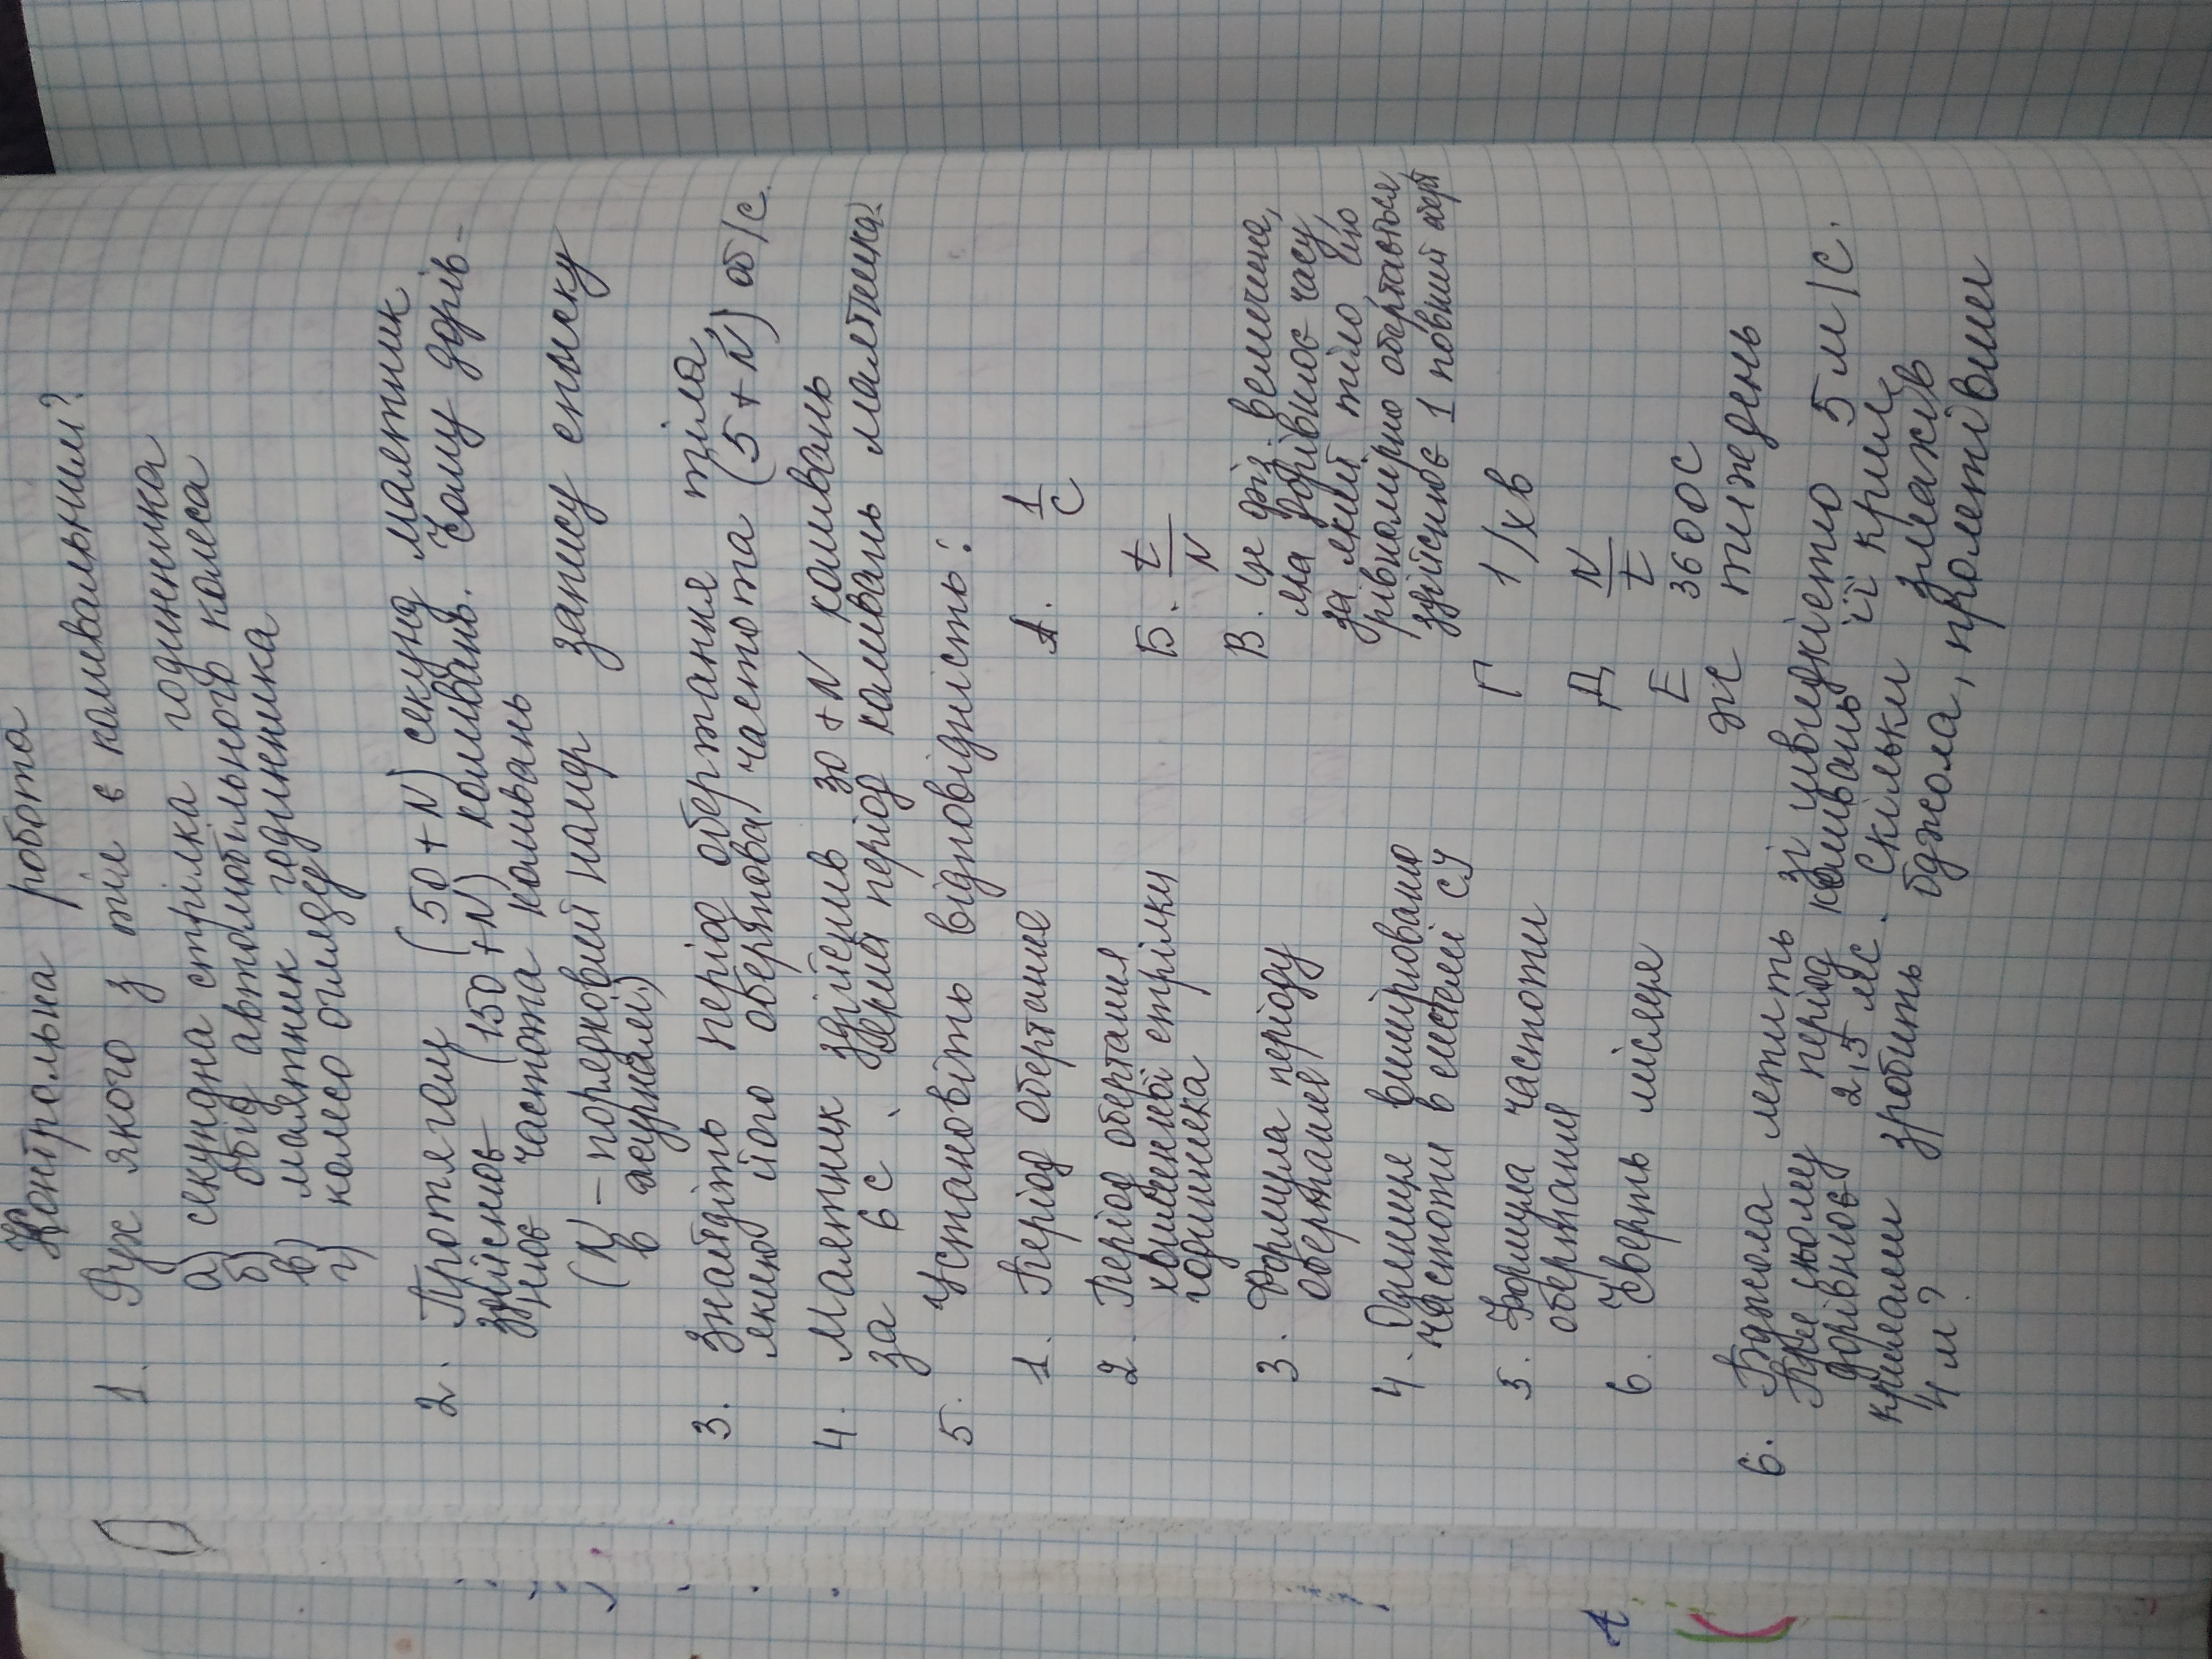 Контрольна робота
1. Рух якого з тіл є коливальним?
а) секундна стрілка годинника
б) обід автомобільного колеса
в) маятник годинника
г) колесо огляду
2. Протягом (50 + N) секунд маятник
здійснює (150 + N) коливань. Чому дорів-
нює частота коливань
(N – порядковий номер запису списку
в журналі)
3. Знайдіть період обертання тіла,
якщо його обертова частота (5 + N) об/с.
4. Маятник здійснив 30 + N коливань
за 6 с. період коливань маятника.
5. Установіть відповідність:
1. Період обертання
2. Період обертання
хвилинної стрілки
годинника
3. Формула періоду
обертання
4. Одиниця вимірювання
частоти в системі СУ
5. Формула частоти
обертання
6. Чверть місяця
А. 1/с
Б. t/N
В. це фіз. величина,
яка дорівнює часу,
за який тіло що
рівномірно обертається
здійснює 1 повний оберт
Г 1/хв
Д N/t
Е 3600 с
Ж тиждень
6. Бджола летить зі швидкістю 5 м/с.
При цьому період коливань її крил
дорівнює 2,5 мс. Скільки змахів
крилами зробить бджола, пролетівши
4 м?
А